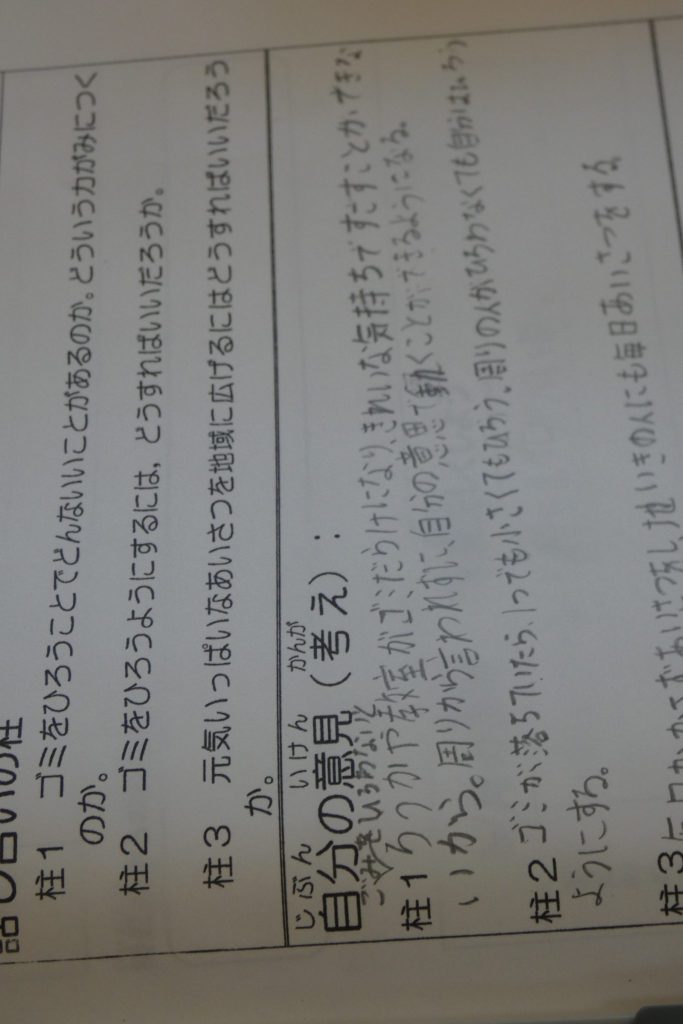 話し合いの柱
柱1 ゴミをひろうことでどんないいことがあるのか。どういう力がみにつく
のか。
柱2 ゴミをひろうようにするには，どうすればいいだろうか。
柱3 元気いっぱいなあいさつを地域に広げるにはどうすればいいだろう
か。
じぶん いけん かんが
自分の意見（考え）：
ごみをひろわないと
柱1 ろうかや教室がゴミだらけになり、きれいな気持ちですごすことができな
いから。周りから言われずに、自分の意思で動くことができるようになる。
柱2 ゴミが落ちていたら、いつでも小さくてもひろう。周りの人がひろわなくても自分はひろう
ようにする。
柱3 あいさつをし、地いきの人にも毎日あいさつをする